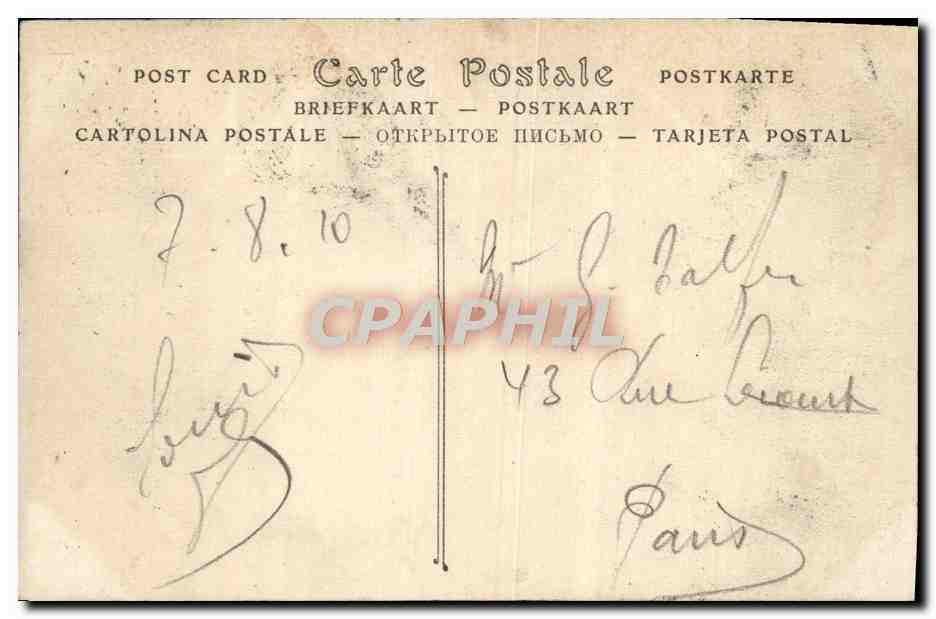 POST CARD Carte Postale POSTKARTE
BRIEFKAART — POSTKAART
CARTOLINA POSTALE — ОТКРЫТОЕ ПИСЬМО — TARJETA POSTAL
7. 8. 10
G.
43 Rue
Paris
CPAPHIL